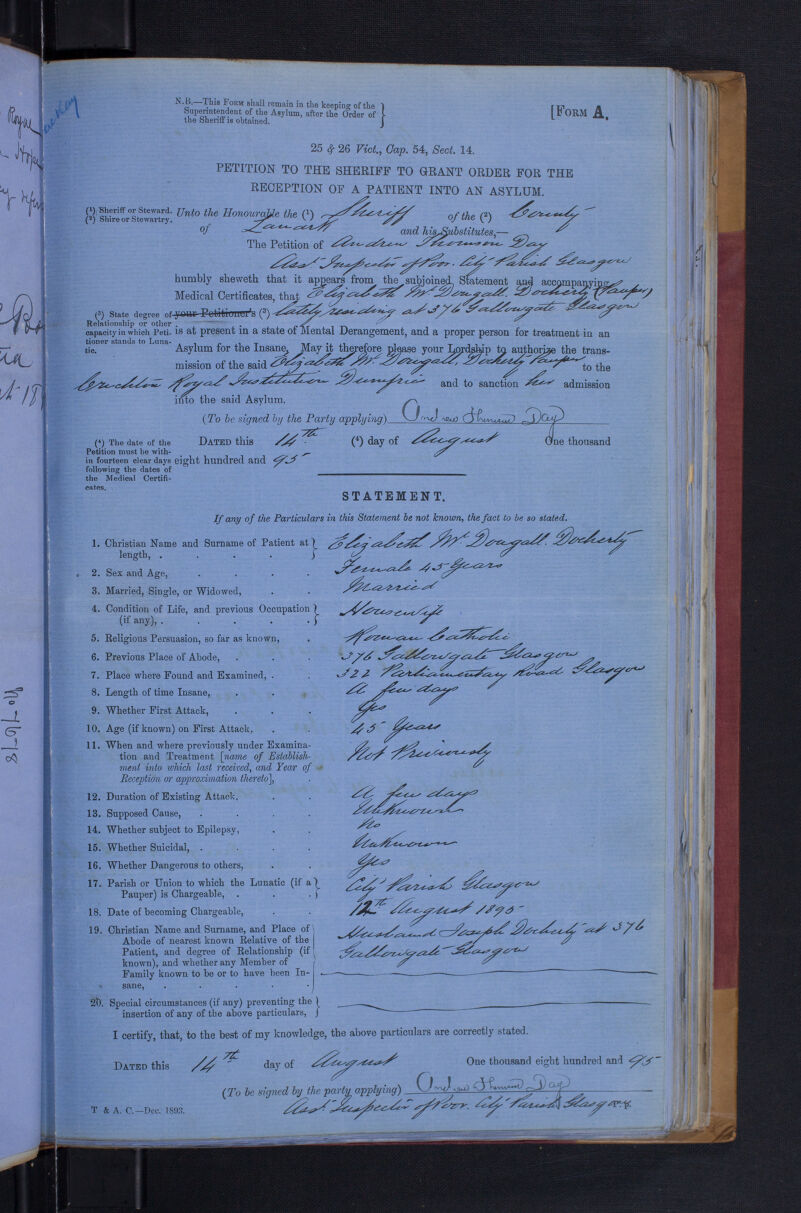 N.B.—This Form shall remain in the keeping of the
Superintendent of the Asylum, after the Order of
the Sheriff is obtained.
[Form A.
25 & 26 Vict., Cap. 54, Sect. 14.
PETITION TO THE SHERIFF TO GRANT ORDER FOR THE
RECEPTION OF A PATIENT INTO AN ASYLUM.
(1) Sheriff or Steward.
(2) Shire or Stewartry.
Unto the Honourable the (1) Sheriff of the (2) County
of Lanark and his Substitutes,—
The Petition of Andrew Thomson Day
Asst Inspector of Poor. City Parish Glasgow
humbly sheweth that it appears from the subjoined Statement and accompanying
Medical Certificates, that Elizabeth Mc Dougall. Docherty (Pauper)
(3) State degree of
Relationship or other
capacity in which Peti-
tioner stands to Luna-
tic.
your Petitioner's (3) lately residing at 376 Gallowgate Glasgow
is at present in a state of Mental Derangement, and a proper person for treatment in an
Asylum for the Insane, May it therefore please your Lordship to authorize the trans-
mission of the said Elizabeth Mc Dougall. Docherty Pauper to the
Crichton Royal Institution Dumfries and to sanction her admission
into the said Asylum.
(To be signed by the Party applying) Andrew Thomson Day
(4) The date of the
Petition must be with-
in fourteen clear days
following the dates of
the Medical Certifi-
cates.
Dated this 14th (4) day of August One thousand
eight hundred and 95
STATEMENT.
If any of the Particulars in this Statement be not known, the fact to be so stated.
1. Christian Name and Surname of Patient at length, . Elizabeth Mc Dougall. Docherty
2. Sex and Age, Female 45 Years
3. Married, Single, or Widowed, Married
4. Condition of Life, and previous Occupation (if any), . Housewife
5. Religious Persuasion, so far as known, Roman Catholic
6. Previous Place of Abode, 376 Gallowgate Glasgow
7. Place where Found and Examined, 322 Parliamentary Road Glasgow
8. Length of time Insane, A few days
9. Whether First Attack, Yes
10. Age (if known) on First Attack, 45 Years
11. When and where previously under Examina-
tion and Treatment [name of Establish-
ment into which last received, and Year of
Reception or approximation thereto], Not Previously
12. Duration of Existing Attack, A few days
13. Supposed Cause, Unknown
14. Whether subject to Epilepsy, No
15. Whether Suicidal, Unknown
16. Whether Dangerous to others, Yes
17. Parish or Union to which the Lunatic (if a Pauper) is Chargeable, City Parish Glasgow
18. Date of becoming Chargeable, 12th August 1895
19. Christian Name and Surname, and Place of
Abode of nearest known Relative of the
Patient, and degree of Relationship (if
known), and whether any Member of
Family known to be or to have been In-
sane, Husband Joseph Docherty at 376
Gallowgate Glasgow
20. Special circumstances (if any) preventing the
insertion of any of the above particulars,
I certify, that, to the best of my knowledge, the above particulars are correctly stated.
Dated this 14th day of August One thousand eight hundred and 95
(To be signed by the party applying) Andrew Thomson Day
Asst Inspector of Poor. City Parish Glasgow.
T & A. C.—Dec. 1893.